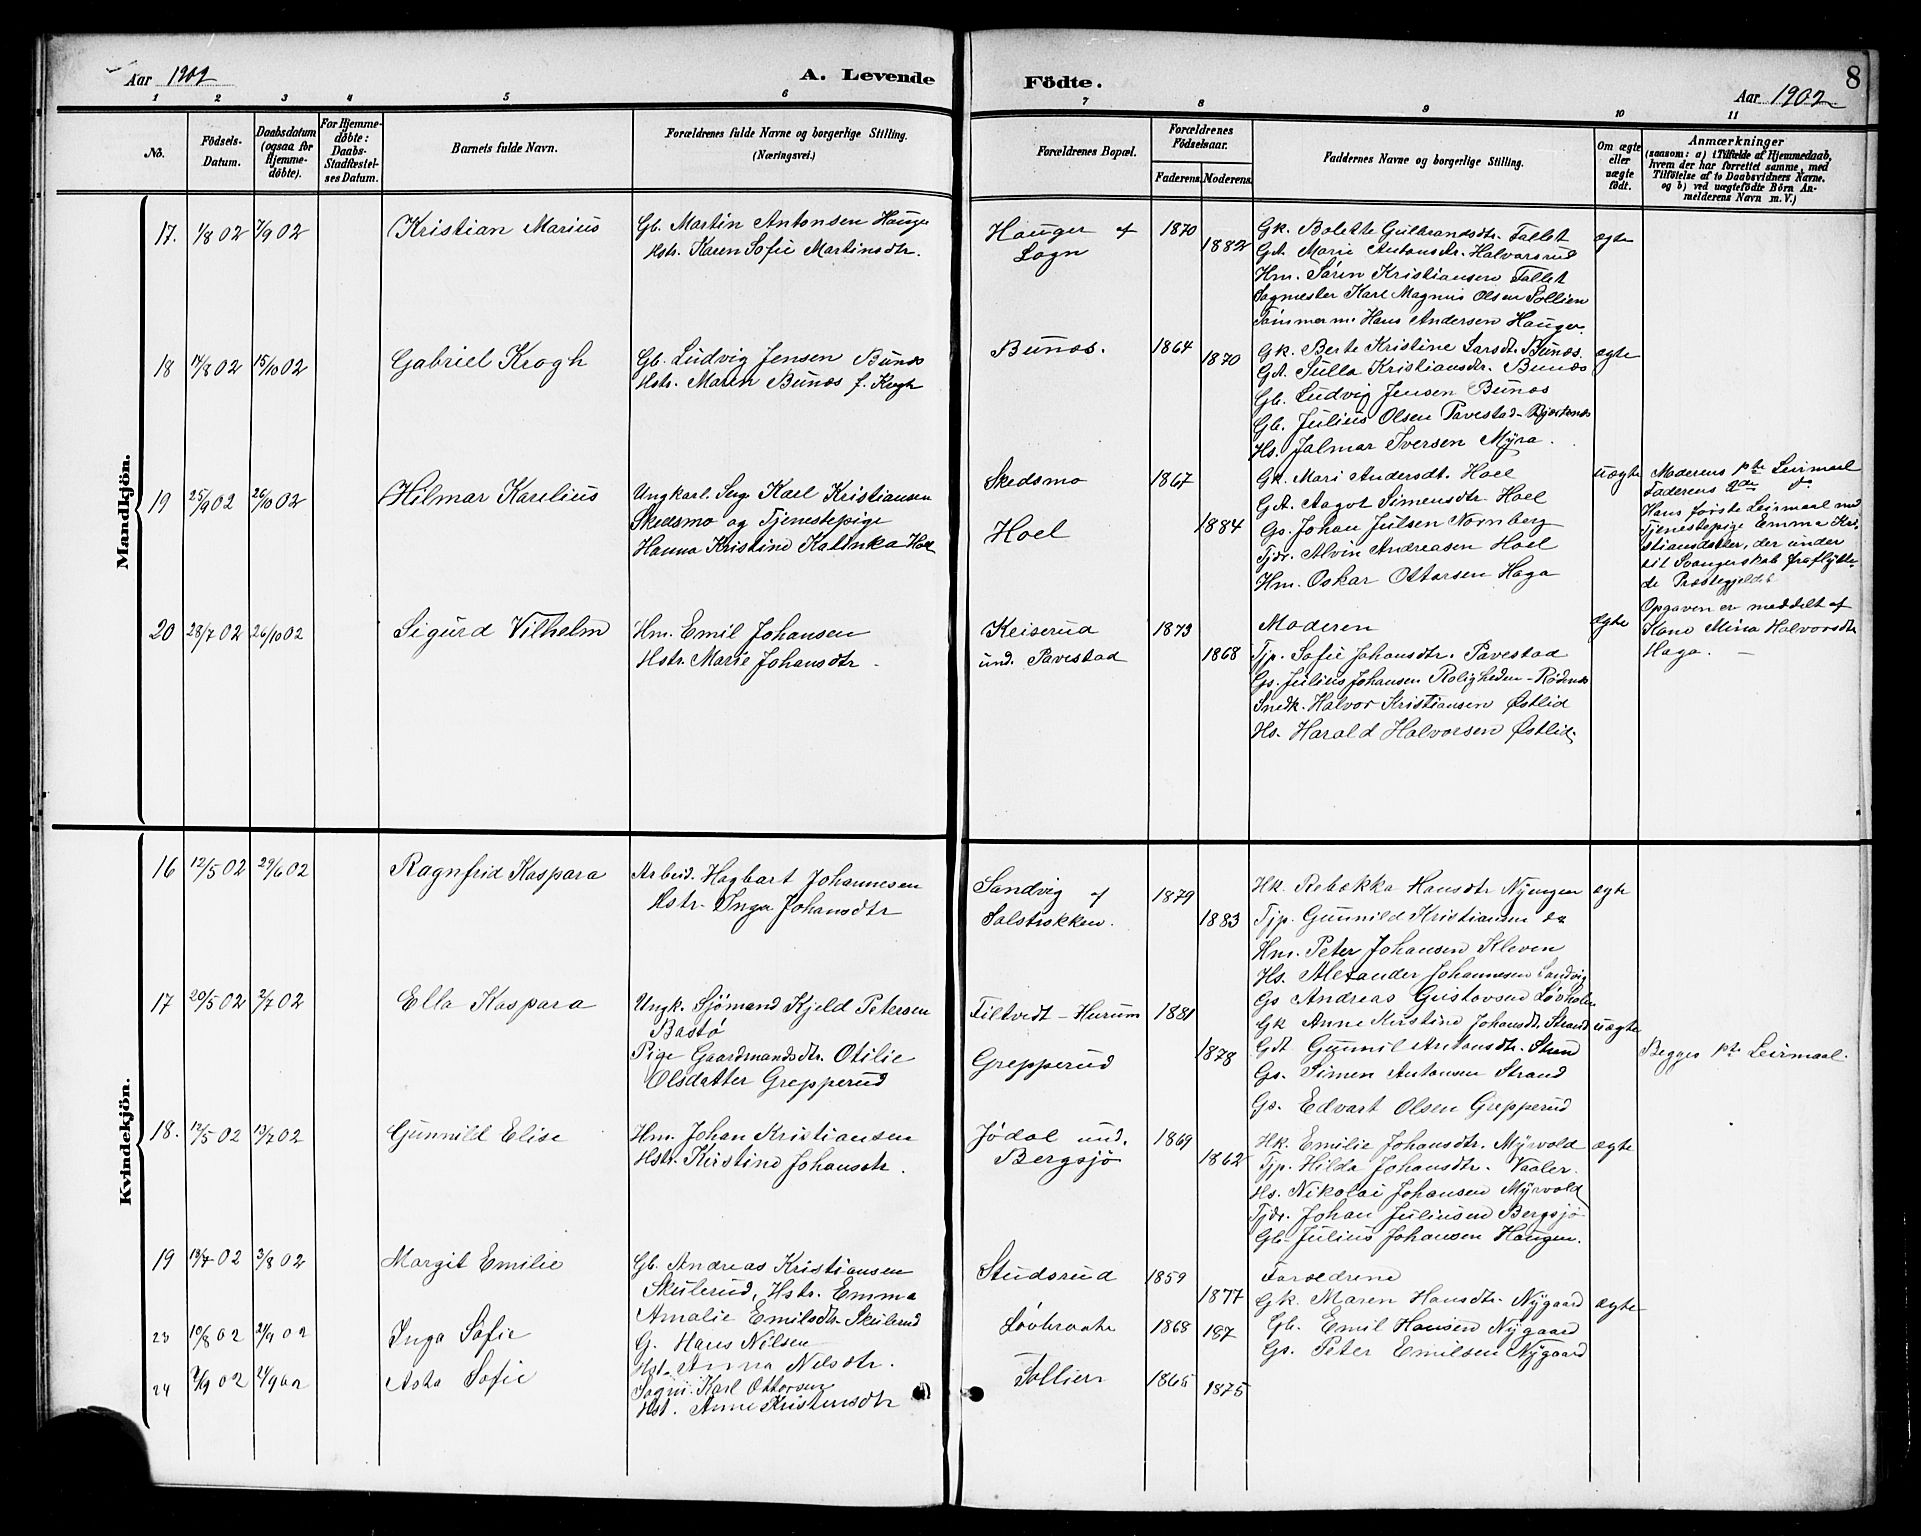 Aar 1902
A. Levende
Födte.
8
Aar 1902
1 2 3 4 5 6 7 8 9 10 11
No.
Födsels-
Datum.
Daabsdatum
(ogsaa for
Hjemme-
döbte).
For Hjemme-
döbte:
Daabs-
Stadfæstel-
ses Datum.
Barnets fulde Navn.
Forældrenes fulde Navne og borgerlige Stilling.
(Næringsvei.)
Forældrenes Bopæl.
Forældrenes
Födselsaar.
Faderens.
Moderens.
Faddernes Navne og borgerlige Stilling.
Om ægte
eller
uægte
födt.
Anmærkninger
(saasom: a) i Tilfælde af Hjemmedaab,
hvem der har forrettet samme, med
Tilföielse af to Daabsvidners Navne,
og b) ved uægtefödte Börn An-
melderens Navn m. V.)
Mandkjön.
17. 1/8 02 7/9 02 Kristian Marius
Gb. Martin Antonsen Hauger
Hstr. Karen Sofie Martinsdtr.
Hauger af
Sogn
1870
1882
Gk. Bolette Gulbrandsdtr. Fallet
Gd. Marie Antonsdtr. Halvorsrud
Hm. Sören Kristiansen Fallet
Sagmester Karl Magnus Olsen Sollien
Tömmerm. Hans Andersen Hauger.
ægte
18 14/8 02 15/10 02 Gabriel Krogh
Gb. Ludvig Jensen Bunæs
Hstr. Maren Bunæs f. Krogh
Bunæs.
1864
1870
Gk. Berte Kristine Larsdtr. Bunæs.
Gd. Julla Kristiansdtr. Bunæs
Gb. Ludvig Jensen Bunæs
Gb. Julius Olsen Pavestad-
Hs. Jalmar Iversen Myra.
ægte
19 25/9 02 26/10 02 Hilmar Karelius
Ungkarl. Serg. Karl Kristiansen
Skedsmo og Tjenestepige
Hanna Kristine Katinka Hoel
Skedsmo
Hoel
1867
1884
Gk. Mari Andersdt. Hoel
Gd. Aagot Simensdtr. Hoel
Gs. Johan Julsen Nornberg
Tjdr. Alvin Andreasen Hoel
Hm. Oskar Ottarsen Haga
uægte
Moderens 1ste Leirmaal
Faderens 2de do
Hans förste Leirmaal med
Tjenestepige Emma Kri-
stiansdatter, der under
sit Svangerskab fraflytte-
de Præstegjeldet
20 28/7 02 26/10 02 Sigurd Vilhelm
Hm. Emil Johansen
Hstr. Marie Johansdtr.
Keiserud
und. Pavestad
1873
1868
Moderen
Tjp. Sofie Johansdtr. Pavestad
Gs. Julius Johansen Roligheden - Rödenæs
Snedk. Halvor Kristiansen Østlid
Hs. Harald Halvorsen Østlid.
ægte
Opgaven er meddelt af
Kone Mina Halvorsdtr
Haga. —
Kvindekjön.
16 12/5 02 29/6 02 Ragnfrid Kaspara
Arbeid. Hagbart Johannesen
Hstr. Inga Johansdtr
Sandvig af
Solstrokken.
1879
1883
Hk. Rebekka Hansdtr Nyengen
Tjp. Gunnild Kristiansen do
Hm. Peter Johansen Kleven
Hs. Alexander Johannesen Sandvig
Gs Andreas Gustavsen Løvholen
ægte
17 20/5 02 2/7 02 Ella Kaspara
Ungk. Sjömand Kjeld Petersen
Bastö
Pige Gaardmandsdtr. Otilie
Olsdatter Grepperud
Filtvedt - Hurum
Grepperud
1881
1878
Gk Anne Kirstine Johansdtr. Strand
Gdt Gunnil Antonsdtr. Strand
Gs. Simen Antonsen Strand
Gs. Edvart Olsen Grepperud
uægte
Begges 1ste Leirmaal.
18. 12/5 02 13/7 02 Gunnild Elise
Hm. Johan Kristiansen
Hstr. Kirstine Johansdtr.
Jödal und.
Bergsjö
1869
1862
Hk. Emilie Johansdtr. Myrvold
Tjp. Hilda Johansdtr. Vaaler.
Hs. Nikolai Johansen Myrvold
Tjdr. Johan Juliusen Bergsjö
Gb. Julius Johansen Haugen.
ægte
19 13/7 02 3/8 02 Margit Emilie
Gb. Andreas Kristiansen
Skulerud, Hstr. Emma
Amalie Emilsdtr Skulerud
Studsrud
1859
1877
Forældrene
Gk. Maren Hansdtr. Nygaard
Gb. Emil Hansen Nygaard
Gs. Peter Emilsen Nygaard
ægte
23 10/8 02 21/9 02 Inga Sofie
G. Hans Nilsen
Hst. Anna Nilsdtr.
Løvbraate
1868 187
24 7/9 02 21/9 02 Asta Sofie
Sagm. Karl Ottersen
Hst. Anne Kristensdtr
Sollien
1865
1875